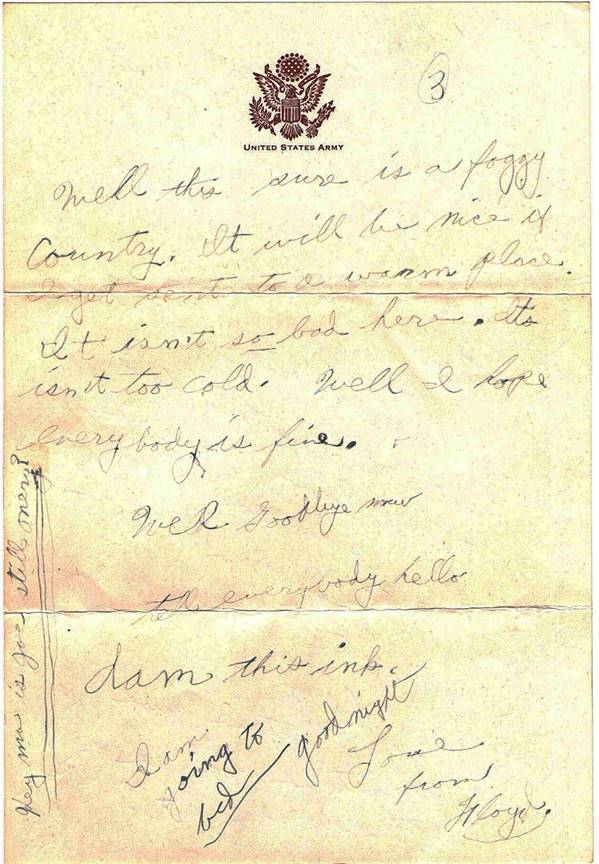 3
UNITED STATES ARMY
Well this sure is a foggy
Country. It will be nice if
I get sent to a warm place.
It isn't so bad here. Its
isn't too cold. Well I hope
everybody is fine.
Well Goodbye now
tell everybody hello
dam this ink.
I am
going to
bed
goodnight
Love
from
Floyd.
Hey mu is Joe still onery?